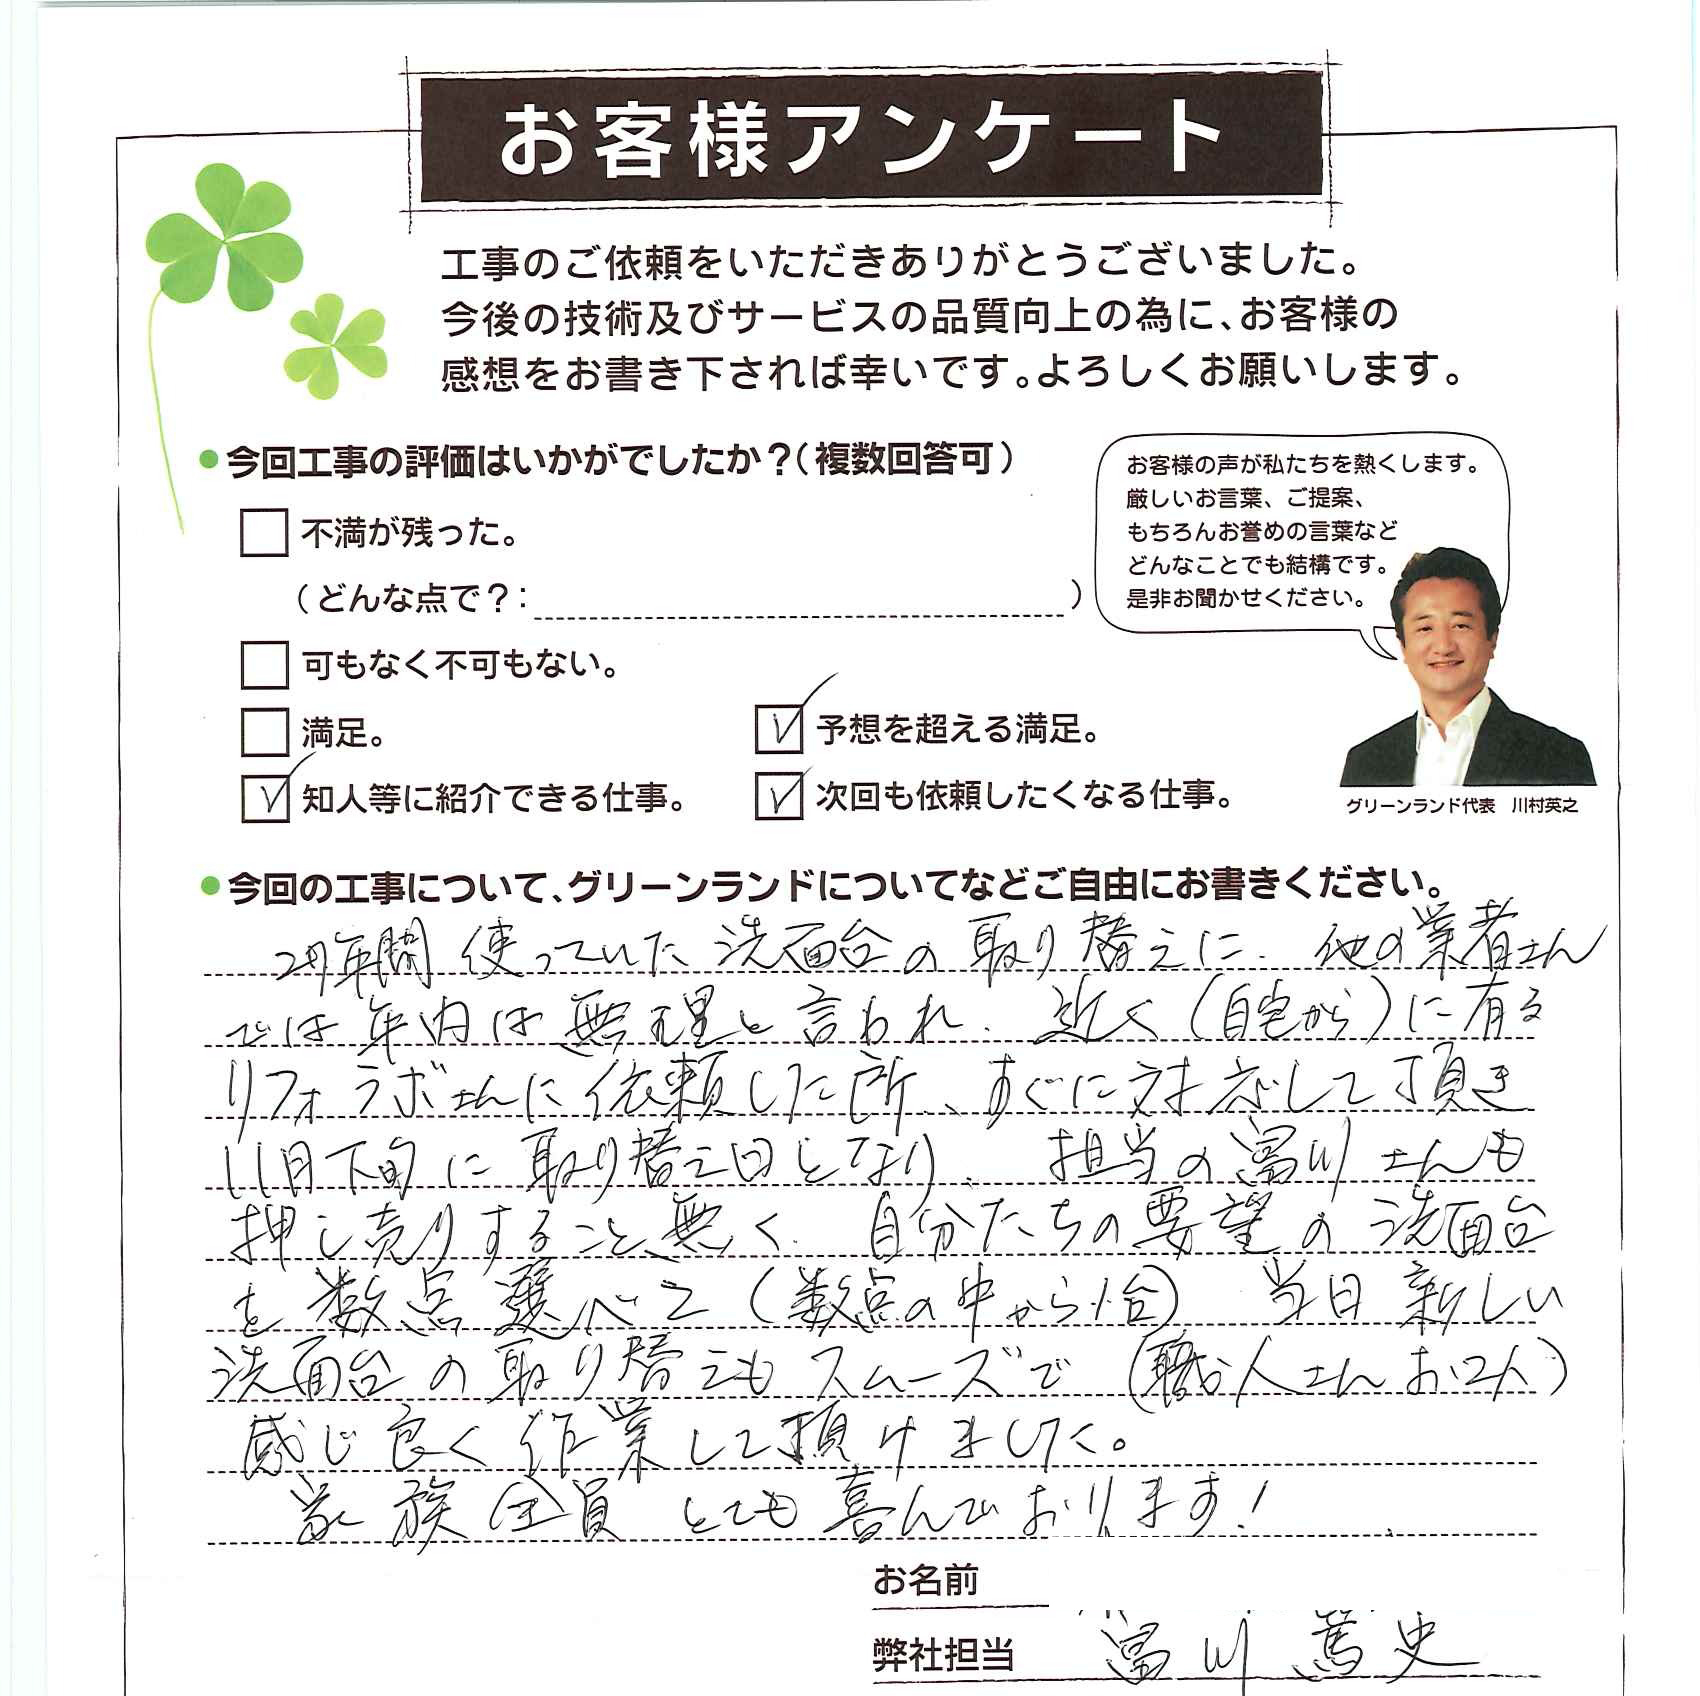 お客様アンケート
工事のご依頼をいただきありがとうございました。
今後の技術及びサービスの品質向上の為に、お客様の
感想をお書き下されば幸いです。よろしくお願いします。
●今回工事の評価はいかがでしたか？(複数回答可)
不満が残った。
(どんな点で？: )
可もなく不可もない。
満足。
予想を超える満足。
知人等に紹介できる仕事。
次回も依頼したくなる仕事。
お客様の声が私たちを熱くします。
厳しいお言葉、ご提案、
もちろんお誉めの言葉など
どんなことでも結構です。
是非お聞かせください。
グリーンランド代表 川村英之
●今回の工事について、グリーンランドについてなどご自由にお書きください。
年間使っていた洗面台の取り替えに、他の業者さん
では年内は無理と言われ、近く(自宅から)に有る
リフォラボさんに依頼した所、すぐに対応して頂き
11月下旬に取り替え日となり、担当の富川さんも
押し売りすること無く、自分たちの要望の洗面台
を数点選べて(数点の中から1台)当日新しい
洗面台の取り替えもスムーズで(職人さんお2人)
感じ良く作業して頂けました。
家族全員とても喜んでおります!
お名前
弊社担当 富川 篤史